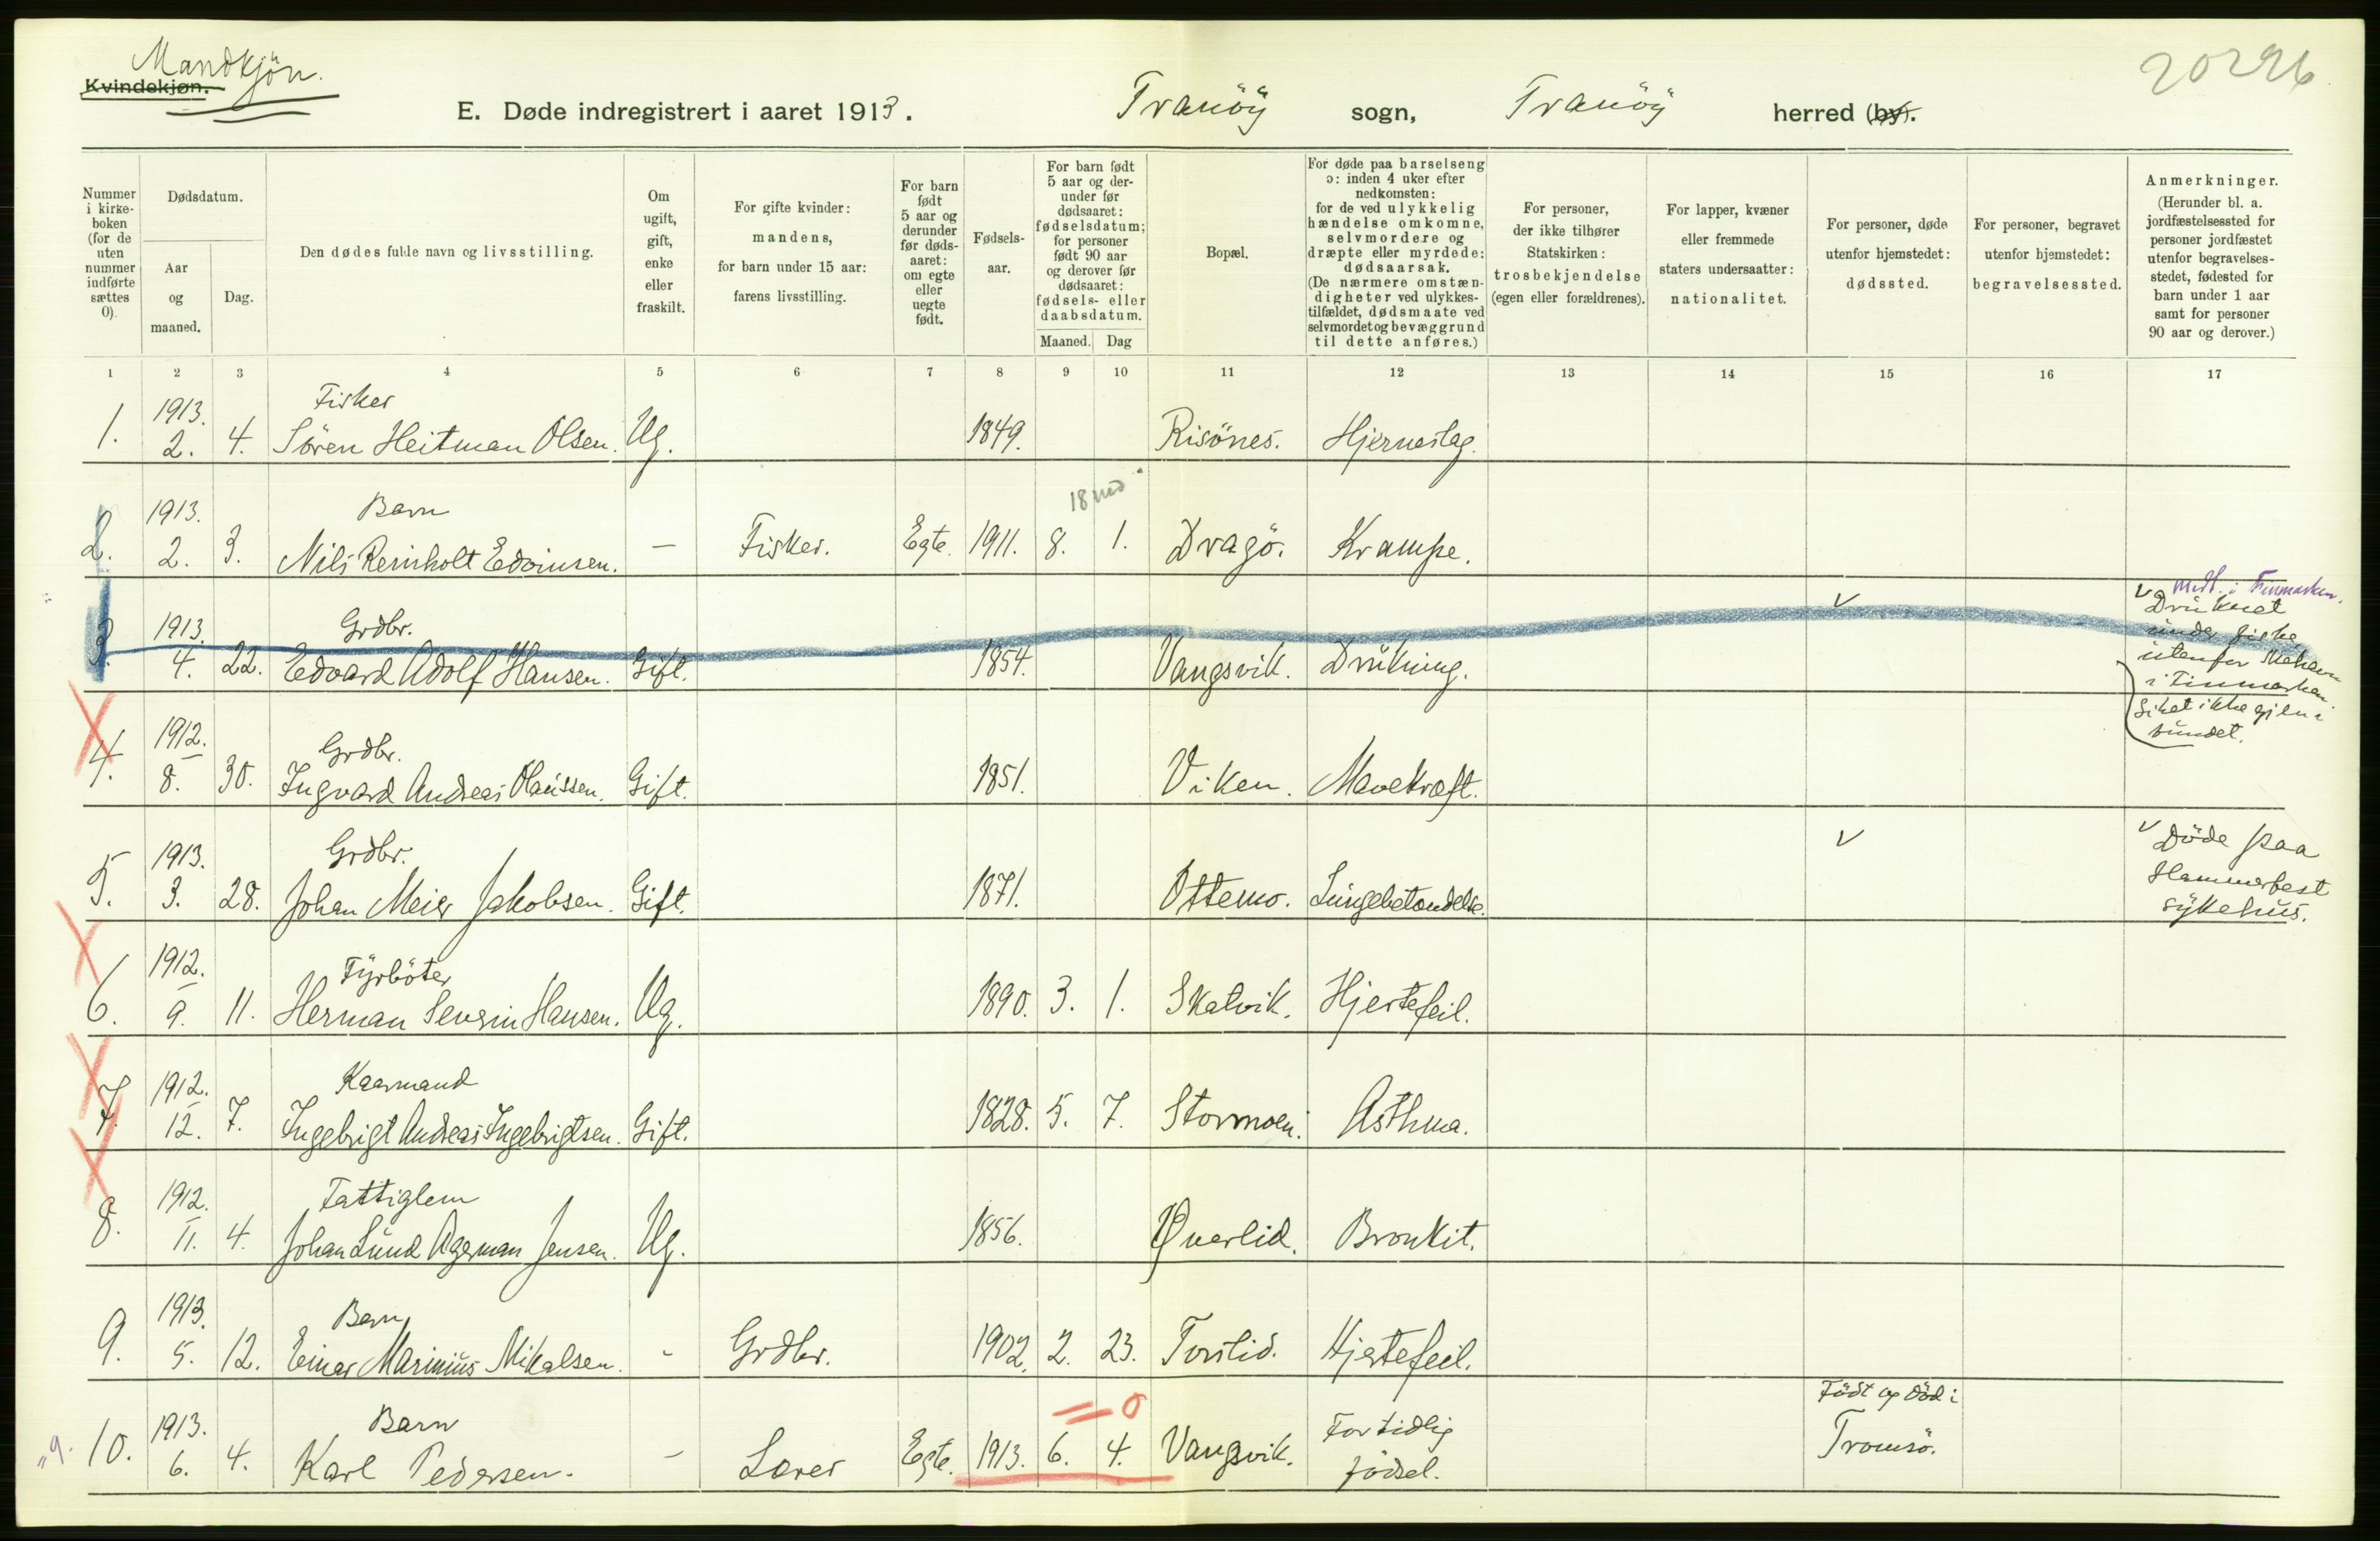 Mandkjön.
Kvindekjøn.
20296
E. Døde indregistrert i aaret 1913. Tranöy sogn, Tranöy herred (by).
Nummer i kirke-boken (for de uten nummer indførte sættes 0).
Dødsdatum.
Aar og maaned.
Dag.
Den dødes fulde navn og livsstilling.
Om ugift, gift, enke eller fraskilt.
For gifte kvinder: mandens, for barn under 15 aar: farens livsstilling.
For barn født 5 aar og derunder før døds-aaret: om egte eller uegte født.
Fødsels-aar.
For barn født 5 aar og der-under før dødsaaret: fødselsdatum; for personer født 90 aar og derover før dødsaaret: fødsels- eller daabsdatum.
Maaned. Dag
Bopæl.
For døde paa barselseng ɔ: inden 4 uker efter nedkomsten: for de ved ulykkelig hændelse omkomne, selvmordere og dræpte eller myrdede: dødsaarsak. (De nærmere omstæn-digheter ved ulykkes-tilfældet, dødsmaate ved selvmordet og bevæggrund til dette anføres.)
For personer, der ikke tilhører Statskirken: trosbekjendelse (egen eller forældrenes).
For lapper, kvæner eller fremmede staters undersaatter: nationalitet.
For personer, døde utenfor hjemstedet: dødssted.
For personer, begravet utenfor hjemstedet: begravelsessted.
Anmerkninger. (Herunder bl. a. jordfæstelsessted for personer jordfæstet utenfor begravelses-stedet, fødested for barn under 1 aar samt for personer 90 aar og derover.)
1 2 3 4 5 6 7 8 9 10 11 12 13 14 15 16 17
1. 1913. 2. 4. Fisker Sören Heitman Olsen. Ug. 1849. Risönes. Hjerneslag.
18 md
2. 1913. 2. 3. Barn Nils Reinholt Edvinsen. — Fisker. Egte. 1911. 8. 1. Dragö. Krampe.
3. 1913. 4. 22. Grdbr. Edvard Adolf Hansen. Gift. 1854. Vangsvik. Drukning. v
v Medt. i Finmarken.
Druknet
under fiske
utenfor Mehavn
i Finmarken.
Liket ikke gjen-
fundet.
4. 1912. 8. 30. Grdbr. Ingvard Andreas Olaussen. Gift. 1851. Viken. Mavekræft.
5. 1913. 3. 28. Grdbr. Johan Meier Jakobsen. Gift. 1871. Ottemo. Lungebetændelse. v
v Döde paa
Hammerfest
sykehus.
6. 1912. 9. 11. Fyrböter Herman Severin Hansen. Ug. 1890. 3. 1. Skatvik. Hjertefeil.
7. 1912. 12. 7. Kaarmand Ingebrigt Andreas Ingebrigtsen. Gift. 1828. 5. 7. Stormoen. Asthma.
8. 1912. 11. 4. Fattiglem Johan Lund Agerman Jensen. Ug. 1856. Øverlid. Bronkit.
9. 1913. 5. 12. Barn Einar Marinius Mikalsen. - Grdbr. 1902. 2. 23. Torslid. Hjertefeil.
= 0
"9. 10. 1913. 6. 4. Barn Karl Pedersen. - Lærer Egte. 1913. 6. 4. Vangsvik. For tidlig födsel. Födt og död i Tromsö.